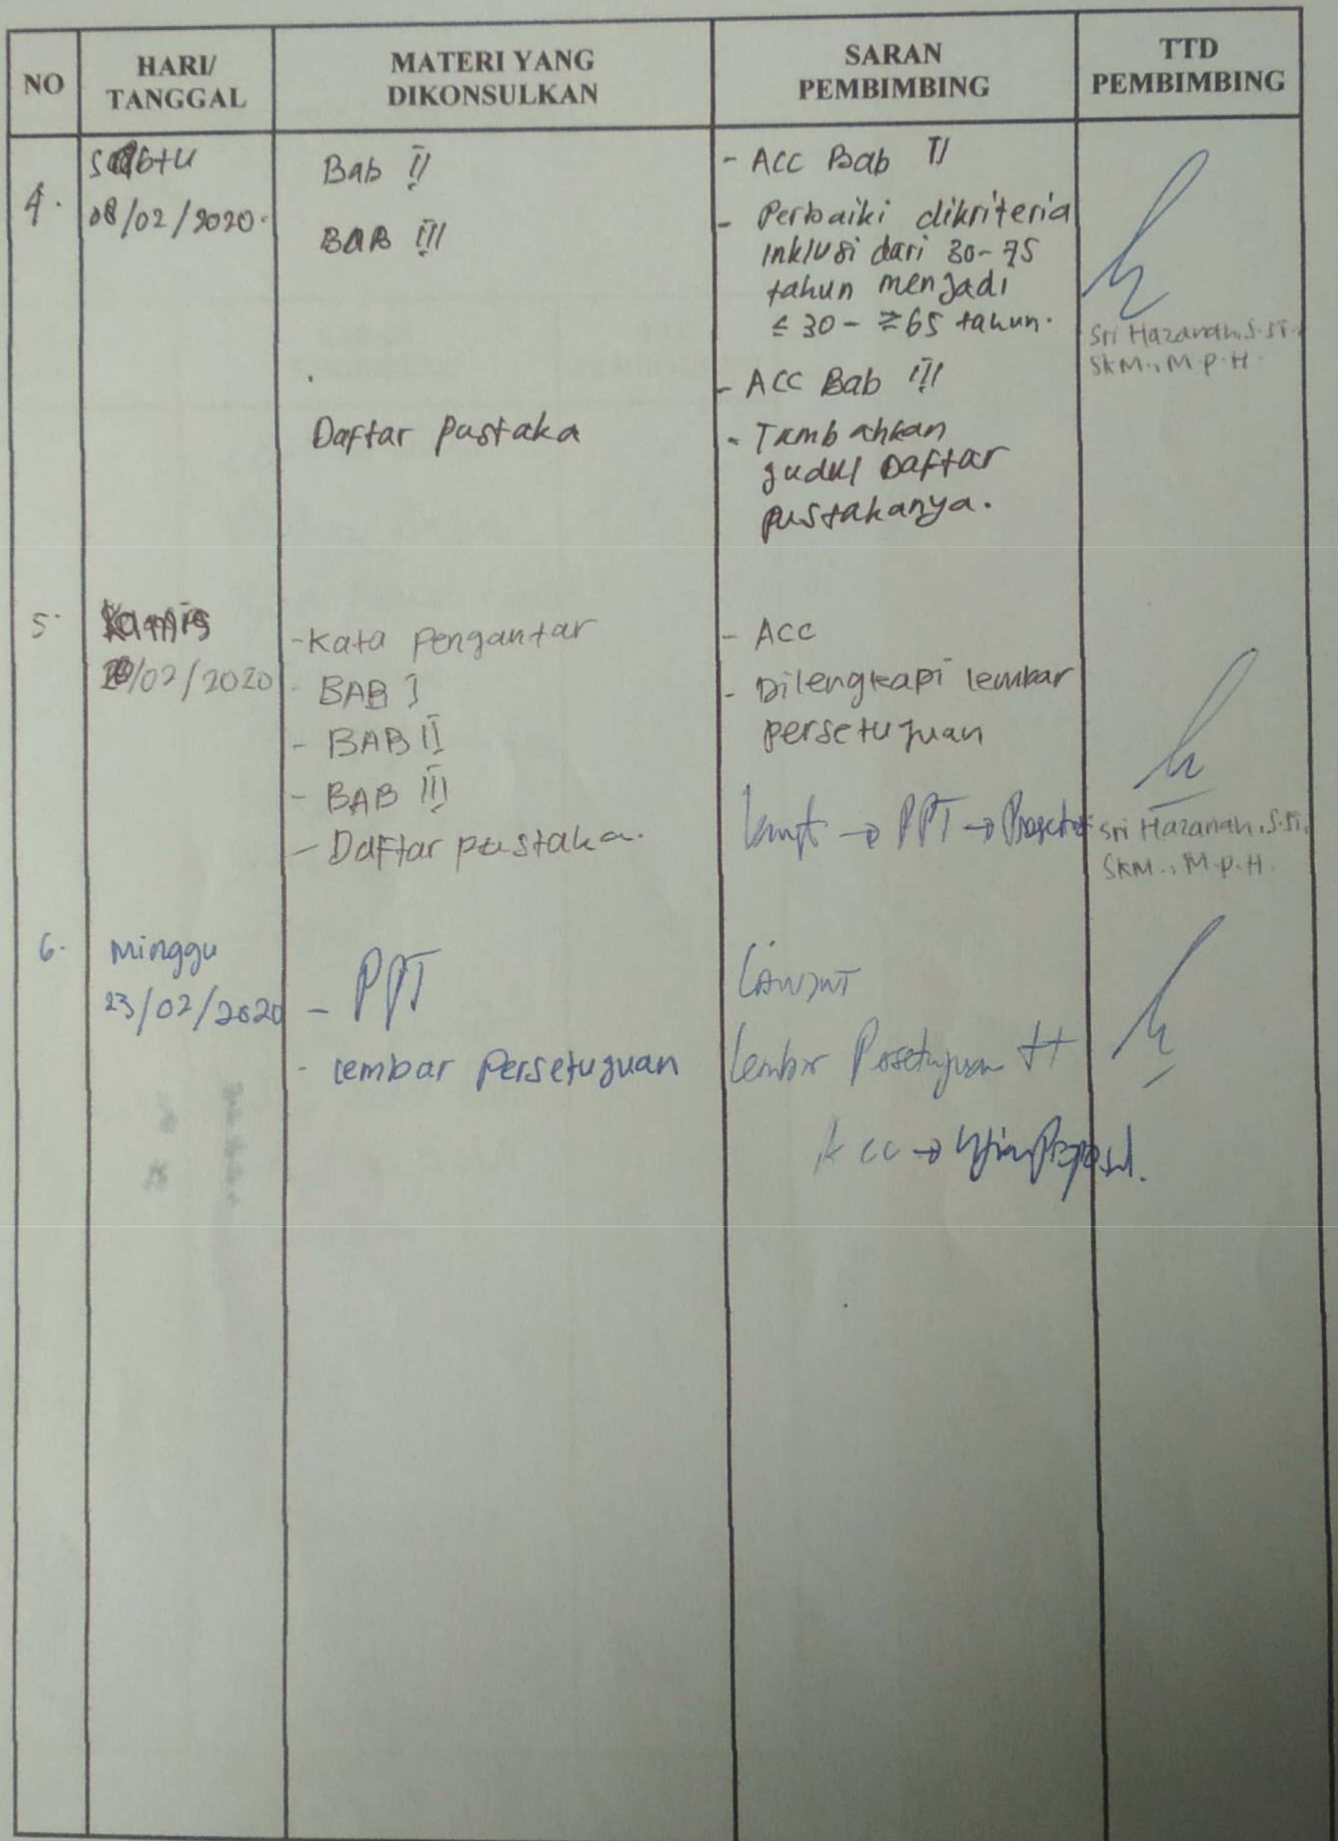 NO
HARI/
TANGGAL
MATERI YANG
DIKONSULKAN
SARAN
PEMBIMBING
TTD
PEMBIMBING
4.
Sabtu
08/02/2020.
Bab II
BAB III
Daftar Pustaka
- Acc Bab II
- Perbaiki dikriteria
inklusi dari 30-75
tahun menjadi
≤ 30 - ≥ 65 tahun.
- Acc Bab III
- Tambahkan
judul Daftar
pustakanya.
Sri Hazanah, S.ST.,
SKM., M.P.H.
5.
Kamis
20/02/2020
- Kata Pengantar
- BAB I
- BAB II
- BAB III
- Daftar pustaka.
- ACC
- Dilengkapi lembar
persetujuan
→ PPT →
Sri Hazanah, S.ST,
SKM., M.P.H.
6.
Minggu
23/02/2020
- PPT
- lembar Persetujuan
Lanjut
Lembar Persetujuan
Acc → Ujian Proposal.